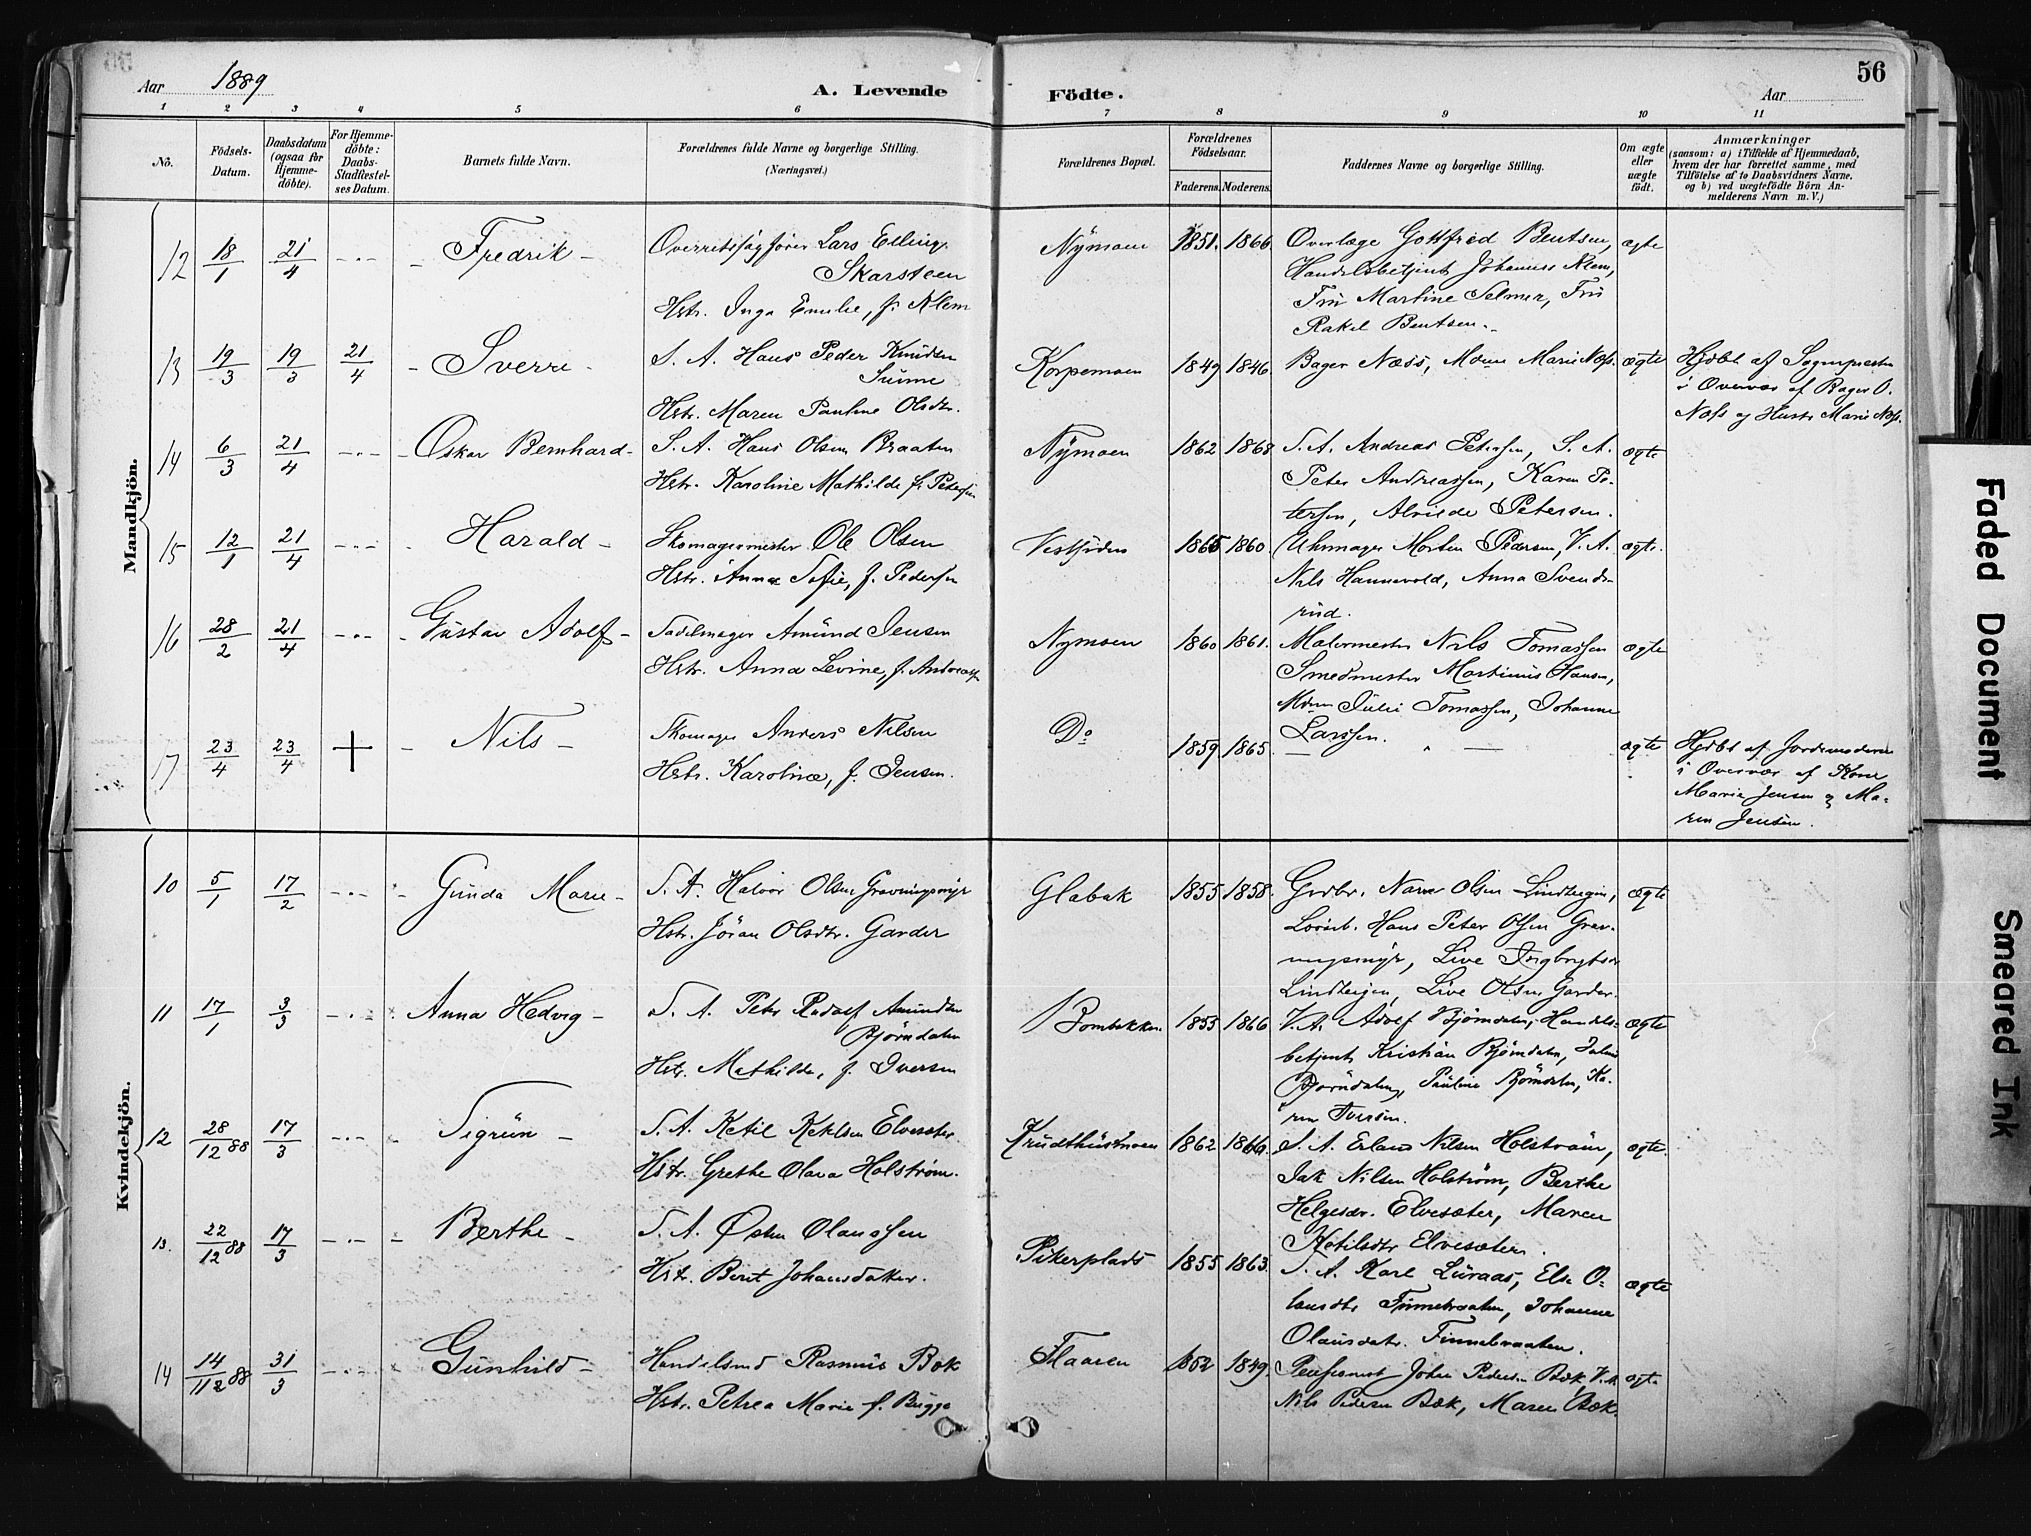 Aar 1889
A. Levende Födte.
Aar
56
1 2 3 4 5 6 7 8 9 10 11
No.
Födsels-Datum.
Daabsdatum (ogsaa for Hjemme-döbte).
For Hjemme-döbte: Daabs-Stadfestel-ses Datum.
Barnets fulde Navn.
Forældrenes fulde Navne og borgerlige Stilling. (Næringsvei.)
Forældrenes Bopæl.
Forældrenes Födselsaar.
Faderens. Moderens.
Faddernes Navne og borgerlige Stilling.
Om ægte eller uægte födt.
Anmærkninger
(saasom: a) i Tilfælde af Hjemmedaab,
hvem der har forrettet samme, med
Tilföielse af to Daabsvidners Navne,
og b) ved uægtefödte Börn An-
melderens Navn m. V.)
Mandkjön.
12 18/1 21/4 -.- Fredrik - Overretssagfører Lars Elling Nymoen 1851. 1866 Overlæge Gottfred Bentsen, ægte
Skarsteen Handelsbetjent Johannes Klem,
Hstr. Inga Emilie, f. Klem Fru Martine Selmer, Fru
Rakel Bentsen.
13 19/3 19/3 21/4 - Sverre - S. A. Hans Peder Knudsen Korpemoen 1849 1846. Bager Næss, Mdm Marie Næss. ægte Hjdbt af Sognepresten
Sunne i Overvær af Bager O.
Hstr. Maren Pauline Olsdtr. Næss og Hustr Marie Næss.
14 6/3 21/4 -.- Oskar Bernhard - S. A. Hans Olsen Braaten Nymoen 1862 1868 S. A. Andreas Petersen, S. A. ægte
Hstr. Karoline Mathilde f. Petersen Peter Andreassen, Karen Pe-
tersen, Alvilde Petersen.
15 12/1 21/4 -.- Harald - Skomagermester Ole Olsen Vestsiden 1865 1860. Uhrmager Morten Pedersen, V. A. ægte.
Hstr. Anna Sofie, f. Pedersen Nils Hannevold, Anna Svends-
rud.
16 28/2 21/4 -.- Gustav Adolf - Sadelmager Amund Jensen Nymoen 1860 1861. Malermester Nils Tomassen ægte
Hstr. Anna Levine, f. Andreassen Smedmester Martinius Hansen,
Mdm Julie Tomassen, Johanne
Larssen.
17 23/4 23/4 + - Nils - Skomager Anders Nilsen Do 1859 1865. — " — ægte Hjdbt af Jordemoderen
Hstr. Karoline, f. Jensen. i Overvær af Kone
Marie Jensen og Ma-
ren Jensen.
Kvindekjön.
10 5/1 17/2 -.- Gunda Marie - S. A. Halvor Olsen Gravningsmyr Glabak 1855 1858. Grdbr. Olsen ægte
Hstr. Jöran Olsdtr. Garder Hans Peter Olsen Grav-
ningsmyr, Live
Live Olsen Garder.
11 17/1 3/3 -.- Anna Hedvig - S. A. Peter Rudolf Amundsen 1855 1866 V. A. Adolf Bjørndalen, Handels- ægte
Bjørndalen betjent Kristian Bjørndalen,
Hstr. Mathilde, f. Iversen Bjørndalen, Pauline Bjørndalen, Ka-
ren Iversen.
12 28/12 88 17/3 -.- Sigrun - S. A. Ketil Ketilsen Elvesæter Krudthusmoen 1862 1866. S. A. Erland Nilsen Holstrøm, ægte.
Hstr. Grethe Olava Holstrøm. Jak Nilsen Holstrøm, Berthe
Helgesdr. Elvesæter, Maren
Ketilsdtr Elvesæteren.
13. 22/12 88 17/3 -.- Berthe - S. A. Østen Olaussen Pikerplads 1855 1863. S. A. Karl Luraas, Else O- ægte
Hstr. Berit Johansdatter. lausdtr Finnebraaten, Johanne
Olausdatr. Finnebraaten.
14 14/12 88 31/3 -.- Gunhild - Handelsmd Rasmus Bæk Flaaten 1852 1849. Pensionist Johan Pedersen Bæk, V. A. ægte
Hstr. Petrea Marie f. Bugge Nils Pedersen Bæk, Maren Bæk.
Faded Document
Smeared Ink